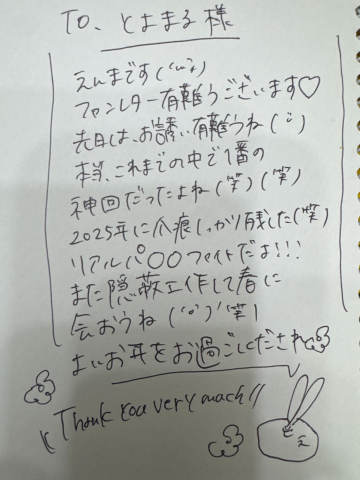 TO、とままる様
えんまです(' ';)
ファンレター有難うございます♡
先日は、お誘い有難うね(;)
本当、これまでの中で1番の
神回だったよね(笑)(笑)
2025年に爪痕しっかり残した(笑)
リアルパ〇〇ファイトだよ!!!
また隠蔽工作して春に
会おうね('o')'笑)
よいお年をお過ごしくださね
Thank You very mach!!
え